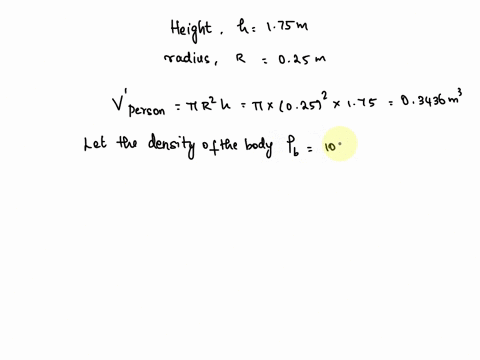 Height, h = 1.75 m
radius, R = 0.25 m
V'person = πR²h = π × (0.25)² × 1.75 = 0.3436 m³
Let the density of the body ρb = 10